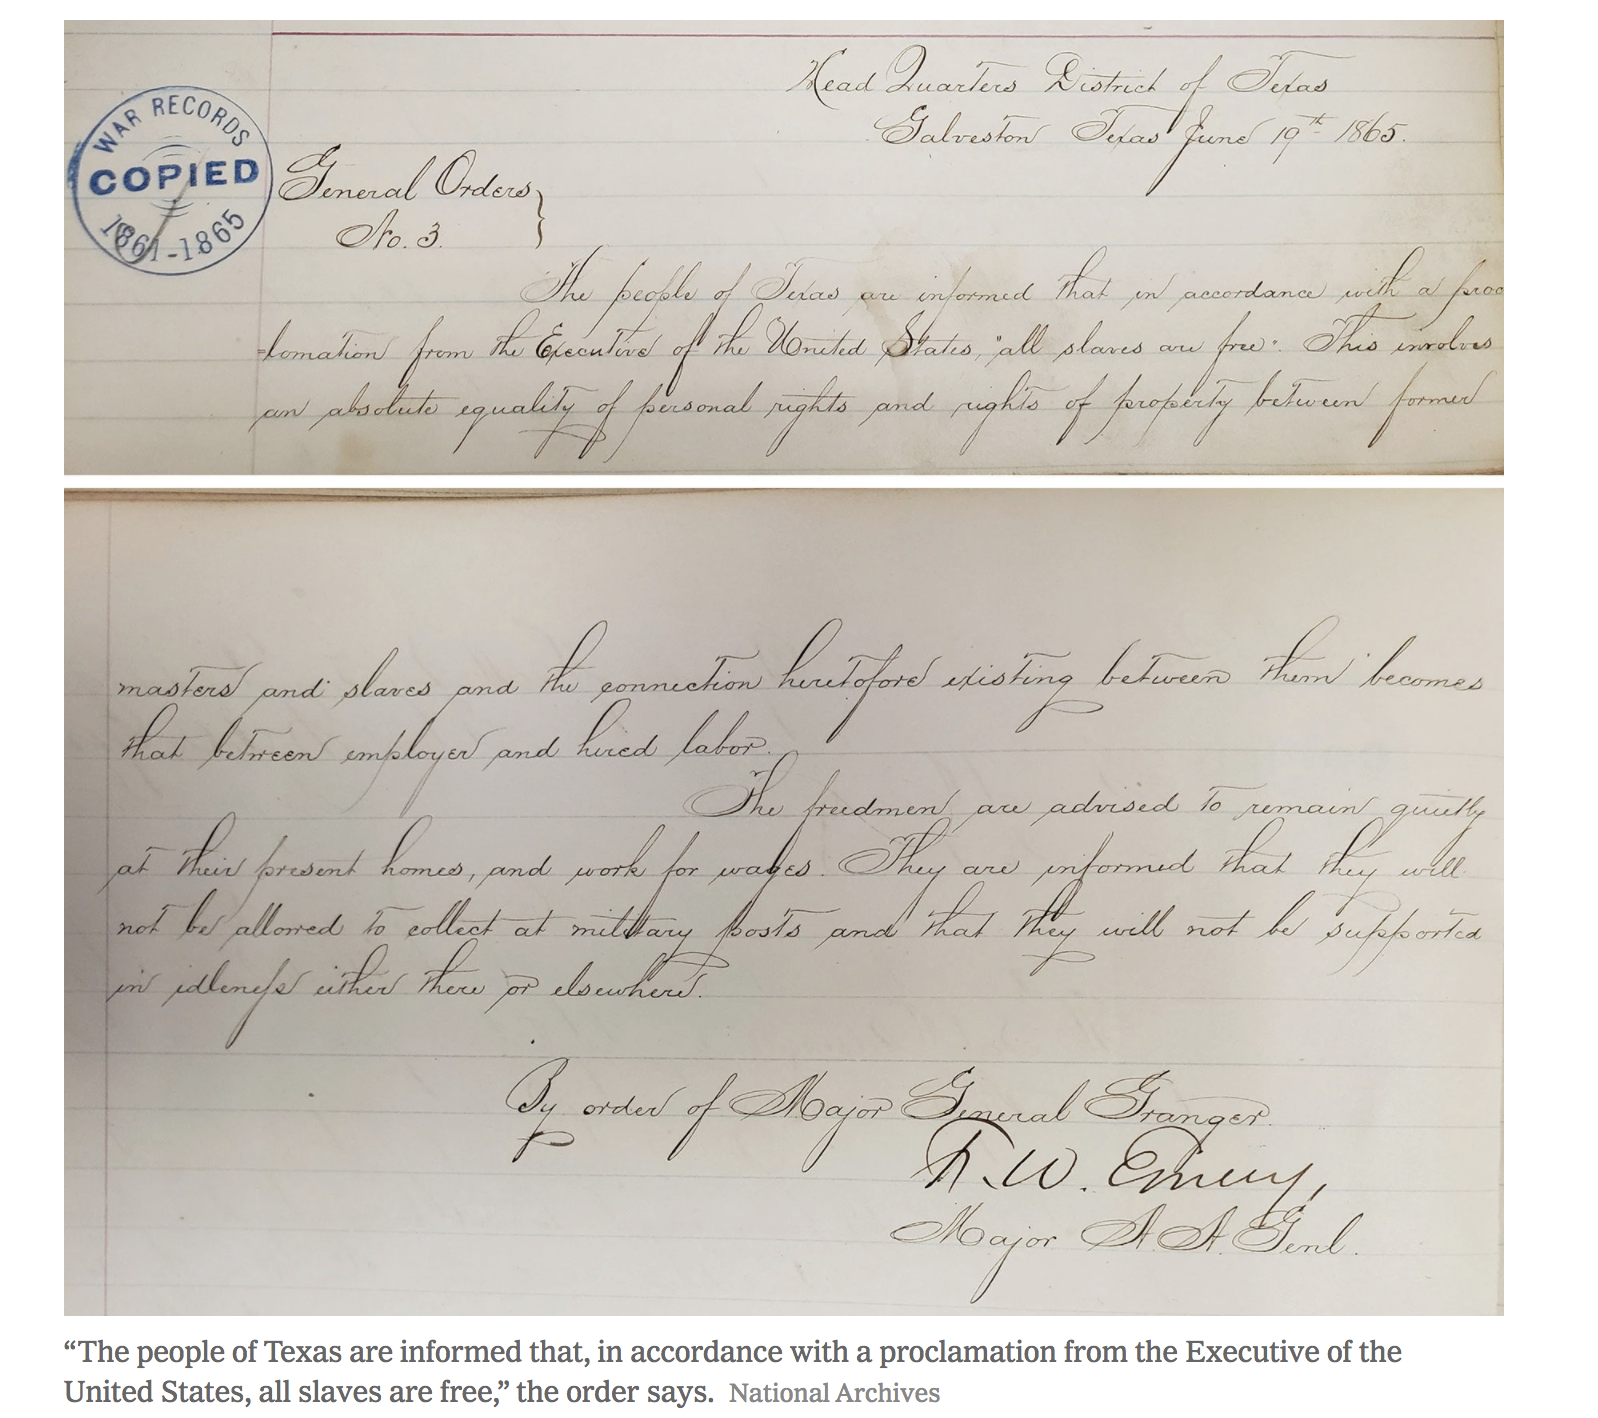 WAR RECORDS
COPIED
1861-1865
Head Quarters District of Texas
Galveston Texas June 19th 1865.
General Orders
No. 3.
The people of Texas are informed that in accordance with a proc
-lamation from the Executive of the United States, "all slaves are free". This involves
an absolute equality of personal rights and rights of property between former
masters and slaves and the connection heretofore existing between them becomes
that between employer and hired labor.
The freedmen are advised to remain quietly
at their present homes, and work for wages. They are informed that they will
not be allowed to collect at military posts and that they will not be supported
in idleness either there or elsewhere.
By order of Major General Granger
F. W. Emery,
Major A. A. Genl.
“The people of Texas are informed that, in accordance with a proclamation from the Executive of the
United States, all slaves are free,” the order says. National Archives